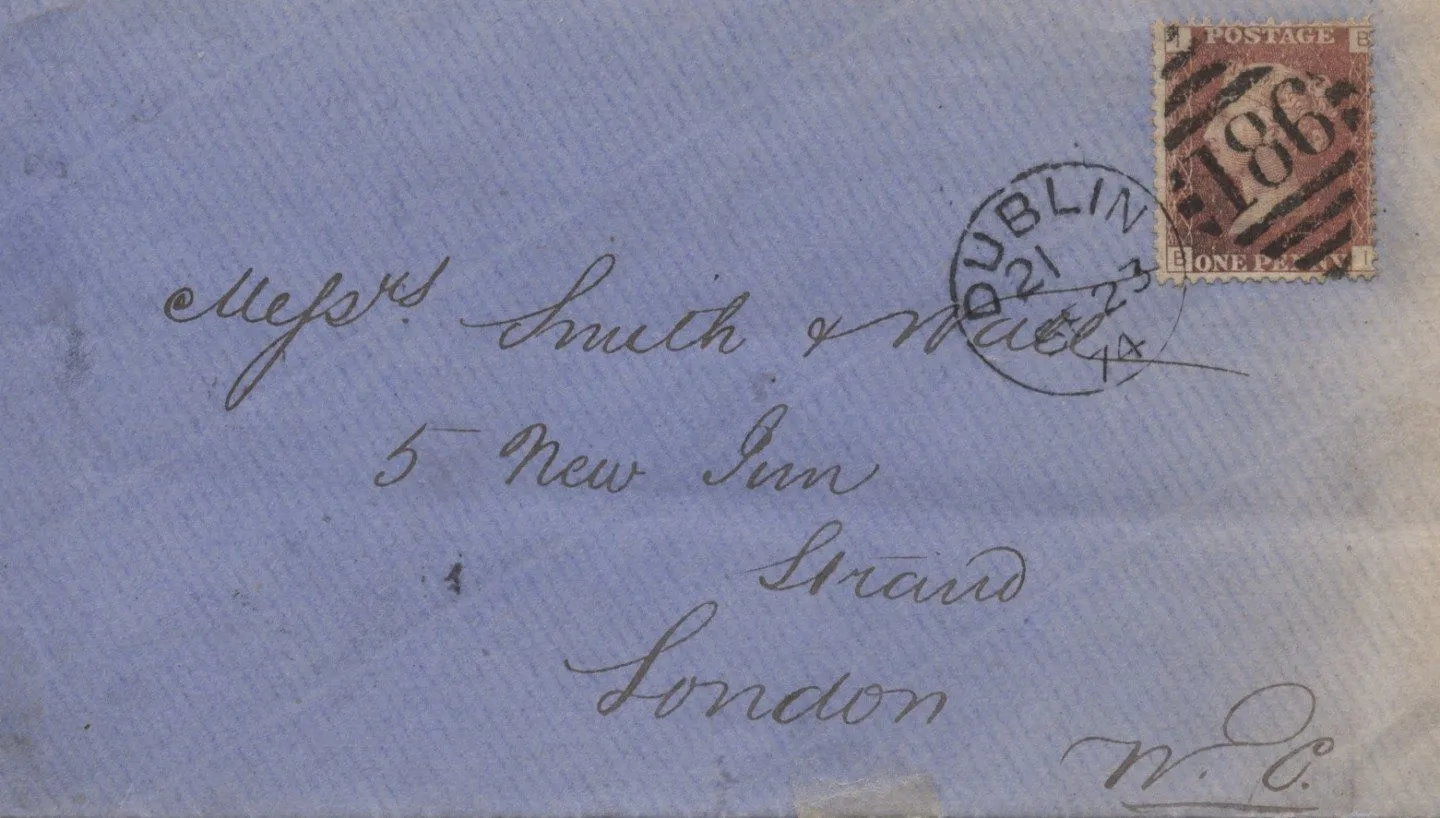 I B
POSTAGE
186
B I
ONE PENNY
DUBLIN
21
23
74
Messrs. Smith &
5 New Inn
Strand
London
W. C.